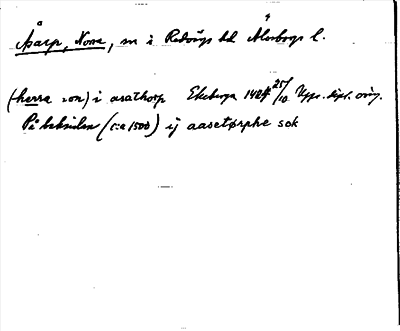 Åsarp, Norra, sn i Redvägs hd Älvsborgs l.
(herra :on) i asathorp Ekeberga 1424 25/10 Upps. dipl. orig.
På baksidan (c:a 1500) ij aasetørphe sok